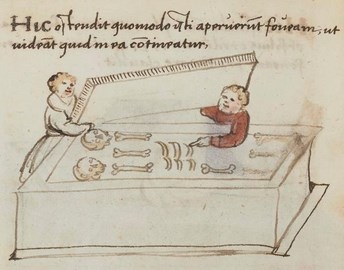 HIC oſtendit quomodo iſti aperuerūt foueam, ut
uideāt quid in ea cōtineatur,